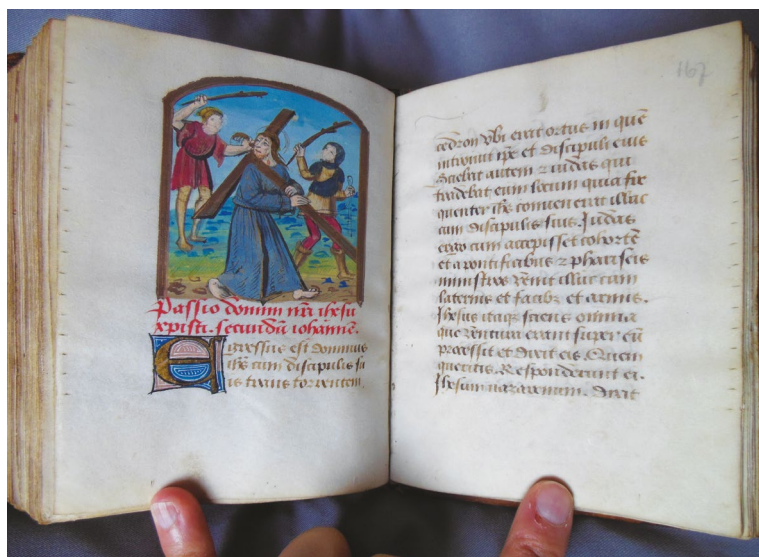 Passio domini nr̃i ihesu
xpisti. secundũ iohannẽ.
Egressus est dominus
ihs̃ cum discipulis su
is trans torrentem
1167
cedron vbi erat ortus in quẽ
introiuit ip̃e et discipuli eius
Sciebat autem ⁊ iudas qui
tradebat eum locum quia fre
quenter ihs̃ conuenerat illuc
cum discipulis suis. Iudas
ergo cum accepisset cohortẽ
et a pontificibus ⁊ phariseis
ministros venit illuc cum
laternis et facibꝫ et armis.
Ihesus itaqꝫ sciens omnia
que ventura erant super eũ
processit et dixit eis. Quem
queritis. Responderunt ei.
Ihesum nazarenum. Dixit